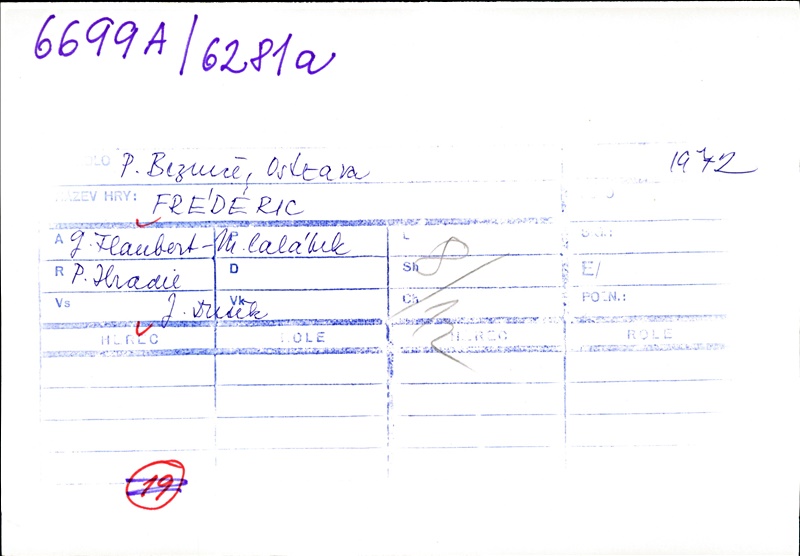 6699A/6281a
P. Bezruče, Ostrava 1972
NÁZEV HRY: FRÉDÉRIC
A G. Flaubert - M. Calábek L
R P. Hradil D Sh 8/ E/
Vs J. Dušek Vk Ch POZN.:
HEREC ROLE HEREC ROLE
19